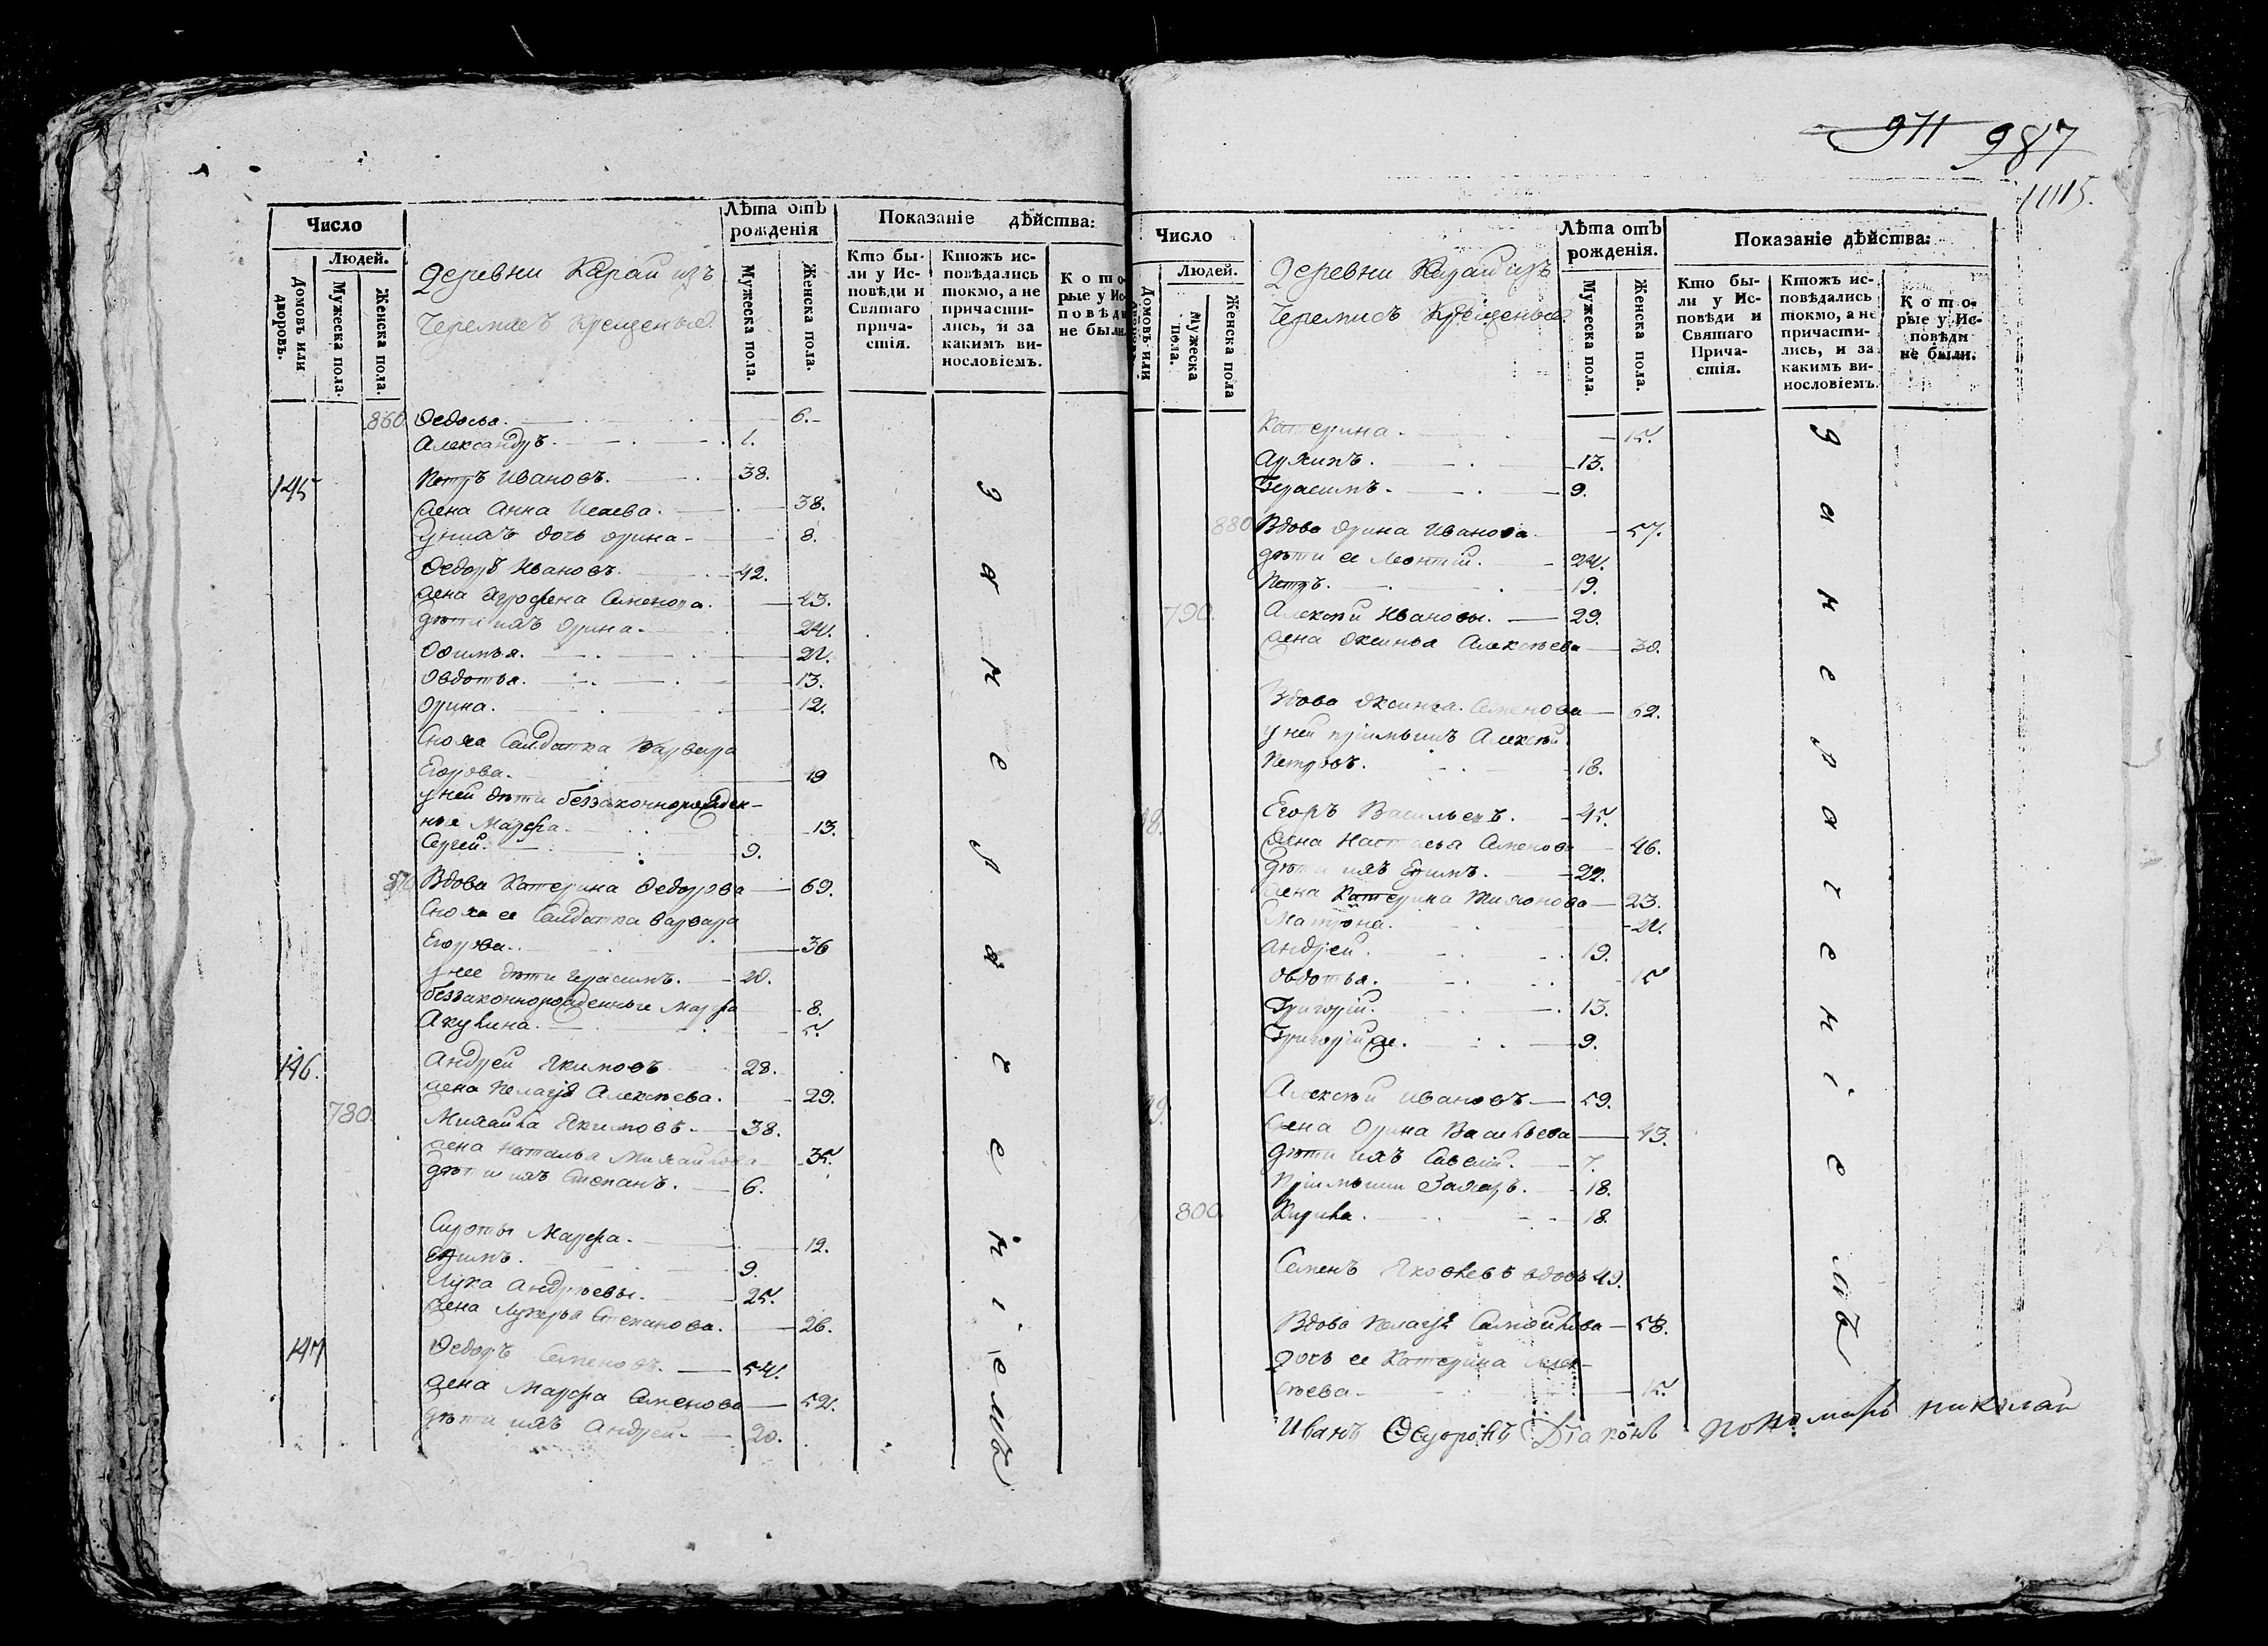 Число
Людей.
Домовъ или дворовъ.
Мужеска пола.
Женска пола.
Деревни Караи изъ
Черемисъ Крещеныя.
Лѣта отъ рожденія
Мужеска пола.
Женска пола.
Показаніе дѣйства:
Кто были у Исповѣди и Святаго причастія.
Ктожъ исповѣдались токмо, а не причастились, и за какимъ винословіемъ.
Которые у Исповѣди не были
860 Ѳедосья. 6.
Александръ. 1.
145 Петръ Ивановъ. 38.
жена Анна Исаева. 38.
у нихъ дочь Орина 8.
Ѳедоръ Ивановъ. 42.
жена Агрофена Семенова. 43.
дѣти ихъ Орина. 24.
Офимья.
Овдотья. 13.
Орина. 12.
Сноха Салдатка Варвара
Егорова. 19
у ней дѣти беззаконнорожден-
ныя Марфа. 13.
Сергей. 9.
870 Вдова Катерина Ѳедорова 69.
Сноха ее Салдатка Варвара
Егорова. 36
у нее дѣти Герасимъ. 20.
беззаконнорожденные Марфа 8.
Акулина. 5.
146. Андрей Якимовъ 28.
жена Пелагѣя Алексѣева. 29.
780. Михайла Якимовъ. 38.
жена Наталья Михайлова 35.
дѣти ихъ Степанъ. 6.
Сироты Марфа. 12.
Ефимъ. 9.
Лука Андрѣевы. 25.
жена Лукерья Степанова. 26.
147 Ѳедоръ Семеновъ. 54.
жена Марфа Семенова 52.
дѣти ихъ Андрей. 20.
за маловременіемъ
971 987
1015.
Число
Людей.
Домовъ или
Мужеска пола.
Женска пола
Деревни Караи изъ
Черемисъ Крещеныя.
Лѣта отъ рожденія.
Мужеска пола.
Женска пола.
Показаніе дѣйства:
Кто были у Исповѣди и Святаго Причастія.
Ктожъ исповѣдались токмо, а не причастились, и за какимъ винословіемъ.
Которые у Исповѣди не были.
Катерина. 15.
Архипъ. 13.
Герасимъ. 9.
880 Вдова Орина Иванова 57.
дѣти ее Леонтій. 24.
Петръ. 19.
790. Алексѣй Ивановы. 29.
жена Оксинья Алексѣева 30.
Вдова Оксинья Семенова 62.
у ней пріимышъ Алексѣй
Петровъ. 18.
Егоръ Васильевъ. 45.
жена Настасья Семенова 46.
дѣти ихъ Ефимъ. 22.
жена Катерина Тихонова 23.
Матрона.
Андрей. 19.
Овдотья. 15
Григорій. 13.
Григорій же. 9.
Алексѣй Ивановъ 59.
жена Орина Васильева 43.
дѣти ихъ Савелій. 7.
Пріимыши Захаръ. 18.
800. Кирила. 18.
Семенъ Яковлевъ вдовъ 49.
Вдова Пелагѣя Самойлова 58.
дочь ее Катерина Алек-
сѣева 15.
Иванъ Ѳедоровъ Діаконъ пономарь николай